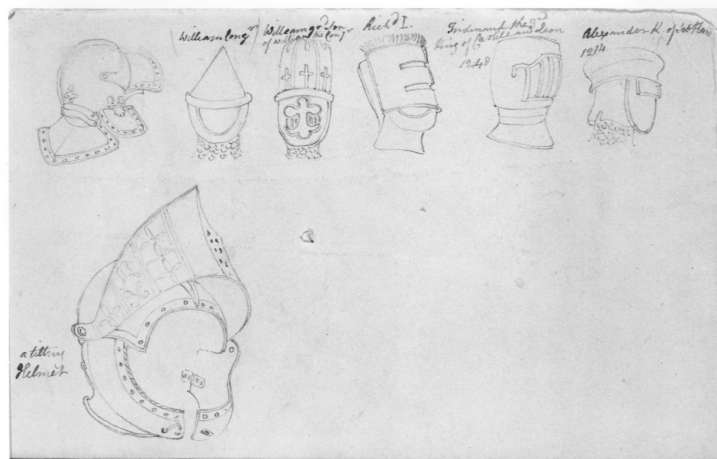 William Conqr
William 2d Son
of William the Conqr
Richd I.
Ferdinand the 3d
King of Castille and Leon
1248
Alexander K. of Scotland
1214
a tilting
Helmet